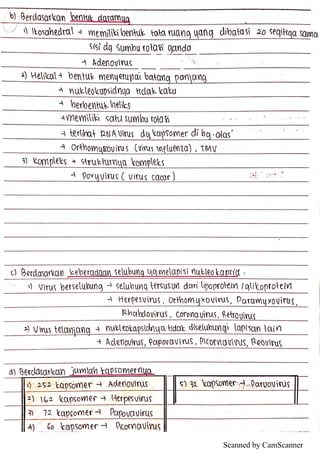 b) Berdasarkan bentuk dasarnya
1) Ikosahedral → memiliki bentuk tata ruang yang dibatasi 20 segitiga sama
sisi dg sumbu rotasi ganda
→ Adenovirus
2) Helikal → bentuk menyerupai batang panjang
→ nukleokapsidnya tidak kaku
→ berbentuk heliks
→ memiliki satu sumbu rotasi
→ terlihat RNA virus dg kapsomer di bg. atas
→ Orthomyxovirus (virus influenza), TMV
3) Kompleks → strukturnya kompleks
→ Poxyvirus (virus cacar)
c) Berdasarkan keberadaan selubung yg melapisi nukleokapsid :
1) Virus berselubung → selubung tersusun dari lipoprotein / glikoprotein
→ Herpesvirus, Orthomyxovirus, Paramyxovirus,
Rhabdovirus, Coronavirus, Retrovirus
2) Virus telanjang → nukleokapsidnya tidak diselubungi lapisan lain
→ Adenovirus, Papovavirus, Picornavirus, Reovirus
d) Berdasarkan jumlah kapsomernya
1) 252 kapsomer → Adenovirus
2) 162 kapsomer → Herpesvirus
3) 72 kapsomer → Papovavirus
4) 60 kapsomer → Picornavirus
5) 32 kapsomer → Parvovirus
Scanned by CamScanner